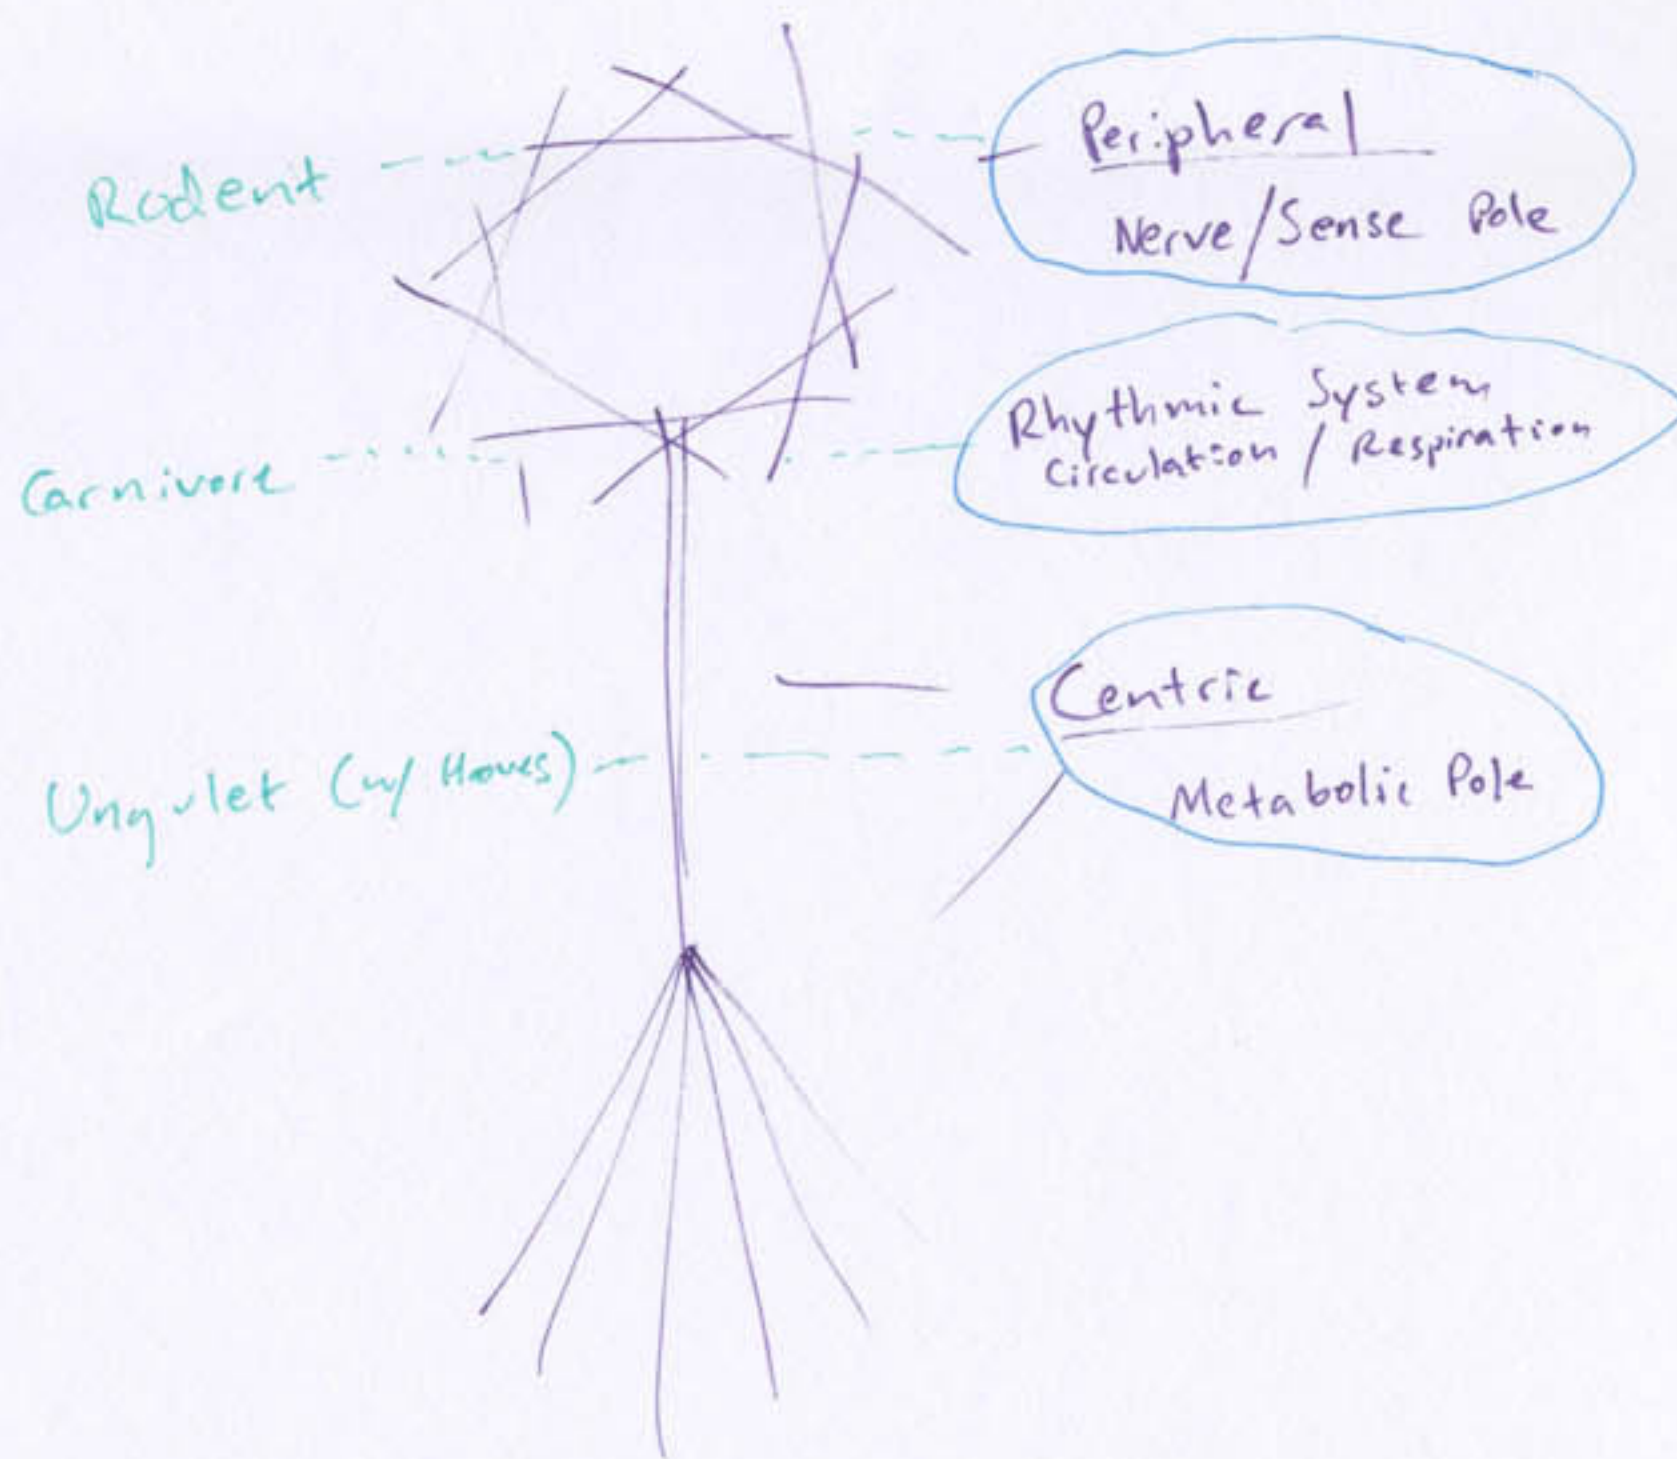 Rodent
Peripheral
Nerve/Sense Pole
Carnivore
Rhythmic System
Circulation / Respiration
Ungulet (w/ Hooves)
Centric
Metabolic Pole